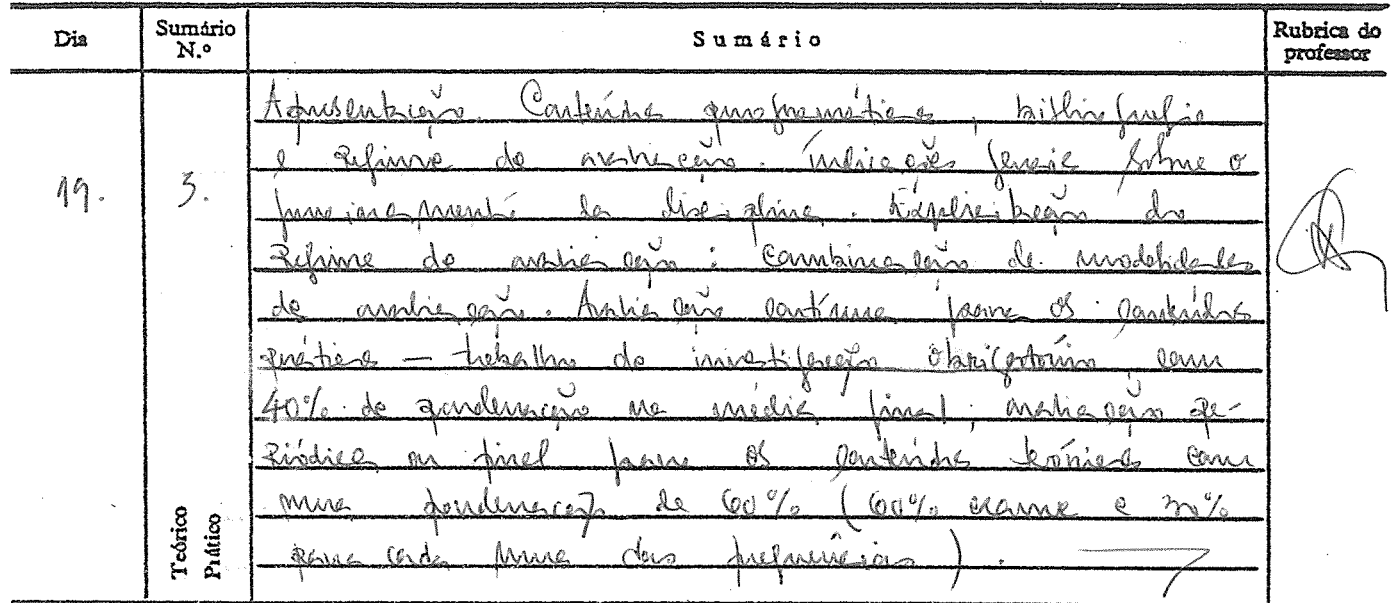 Dia Sumário N.º Sumário Rubrica do professor
Apresentação. Conteúdos programáticos, bibliografia
e regime de avaliação. Indicações gerais sobre o
19. 3. funcionamento da disciplina. Explicitação do
regime de avaliação: combinação de modalidades
de avaliação. Avaliação contínua para os conteúdos
práticos — trabalho de investigação obrigatório com
40% de ponderação na média final; avaliação pe-
riódica ou final para os conteúdos teóricos com
uma ponderação de 60% (60% exame e 30%
para cada uma das frequências).
Teórico
Prático